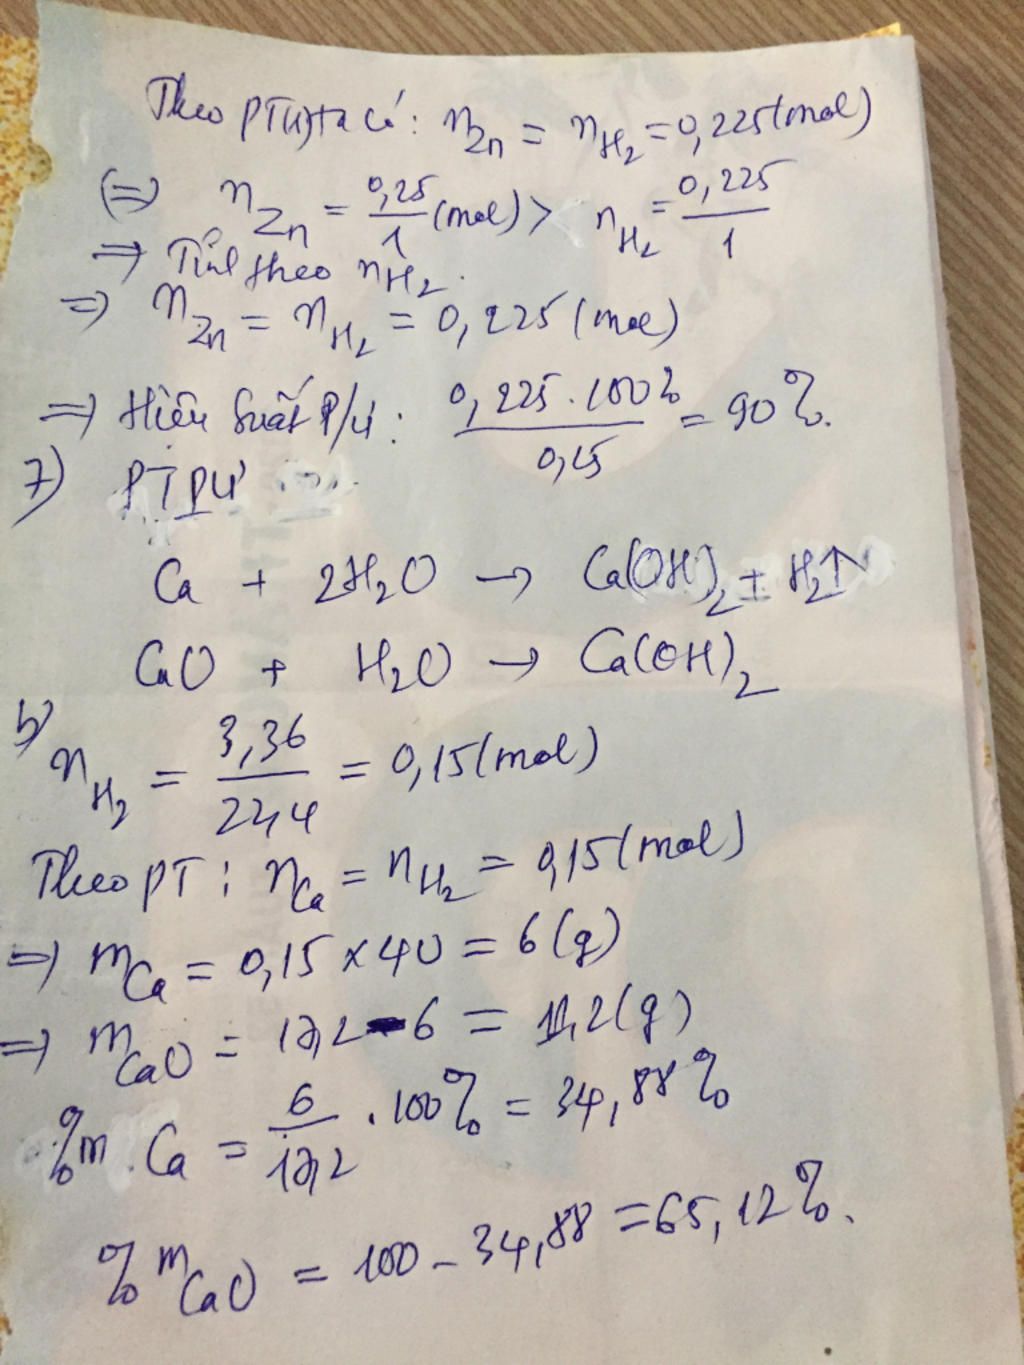 Theo PT(1) ta có: nZn = nH2 = 0,225 (mol)
(=) nZn = 0,25/1 (mol) > nH2 = 0,225/1
=> Tính theo nH2.
=> nZn = nH2 = 0,225 (mol)
=> Hiệu suất P/ứ: 0,225.100%/0,25 = 90%.
7) PTPƯ
Ca + 2H2O → Ca(OH)2 + H2↑
CaO + H2O → Ca(OH)2
b) nH2 = 3,36/22,4 = 0,15 (mol)
Theo PT: nCa = nH2 = 0,15 (mol)
=> mCa = 0,15 x 40 = 6 (g)
=> mCaO = 17,2 - 6 = 11,2 (g)
%m Ca = 6/17,2 . 100% = 34,88%
%mCaO = 100 - 34,88 = 65,12%.